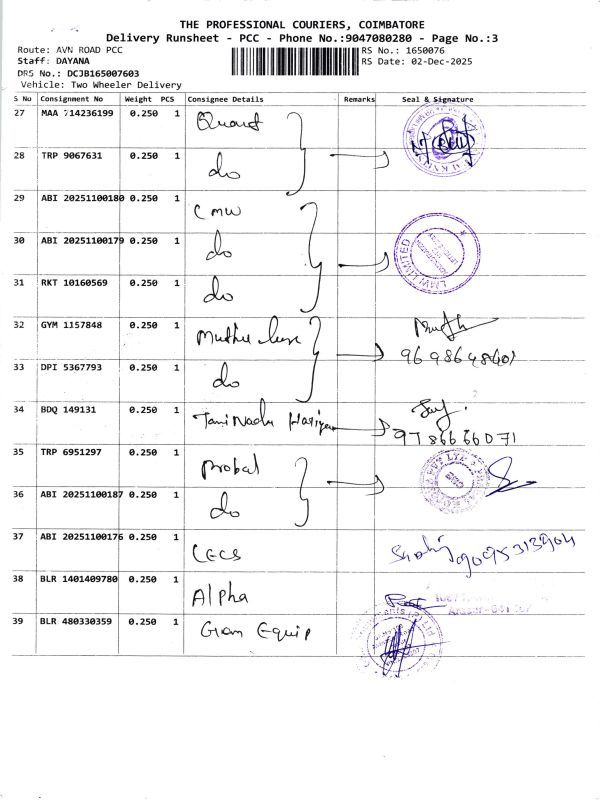 THE PROFESSIONAL COURIERS, COIMBATORE
Delivery Runsheet - PCC - Phone No.:9047080280 - Page No.:3
Route: AVN ROAD PCC RS No.: 1650076
Staff: DAYANA RS Date: 02-Dec-2025
DRS No.: DCJB165007603
Vehicle: Two Wheeler Delivery
S No Consignment No Weight PCS Consignee Details Remarks Seal & Signature
27 MAA 714236199 0.250 1
28 TRP 9067631 0.250 1 do
29 ABI 20251100180 0.250 1 CMW
30 ABI 20251100179 0.250 1 do
LMW LIMITED
31 RKT 10160569 0.250 1 do
32 GYM 1157848 0.250 1 Muthu
33 DPI 5367793 0.250 1 do
34 BDQ 149131 0.250 1 Tamil Nadu
9786666071
35 TRP 6951297 0.250 1 Probal
36 ABI 20251100187 0.250 1 do
37 ABI 20251100176 0.250 1 CECS 9095313904
38 BLR 1401409780 0.250 1 Alpha
39 BLR 480330359 0.250 1 Gram Equip